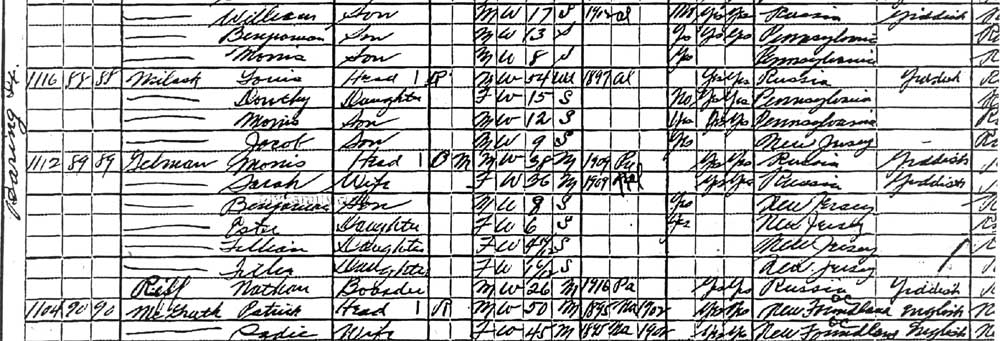 William Son M W 17 S 1902 al no yes yes Russia Yiddish
Benjamin Son M W 13 S yes yes yes Pennsylvania
Morris Son M W 8 S yes Pennsylvania
1116 88 88 Louis Head 1 R M W 54 Wd 1897 al yes yes Russia Yiddish
Dorothy Daughter F W 15 S no yes yes Pennsylvania
Morris Son M W 12 S yes yes yes Pennsylvania
Jacob Son M W 9 S yes New Jersey
1112 89 89 Gelman Morris Head 1 O M M W 38 M 1909 Pa yes yes Russia Yiddish
Sarah Wife F W 36 M 1909 yes yes Russia Yiddish
Benjamin Son M W 9 S yes New Jersey
Ester Daughter F W 6 S yes New Jersey
Lillian Daughter F W S New Jersey
Daughter F W S New Jersey
Reff Nathan Boarder M W 26 M 1916 Pa yes yes Russia Yiddish
1104 90 90 McGrath Patrick Head 1 R M W 50 M 1895 Na 1902 yes yes New Foundland English
Sadie Wife F W 45 M 1895 Na 1902 yes yes New Foundland English